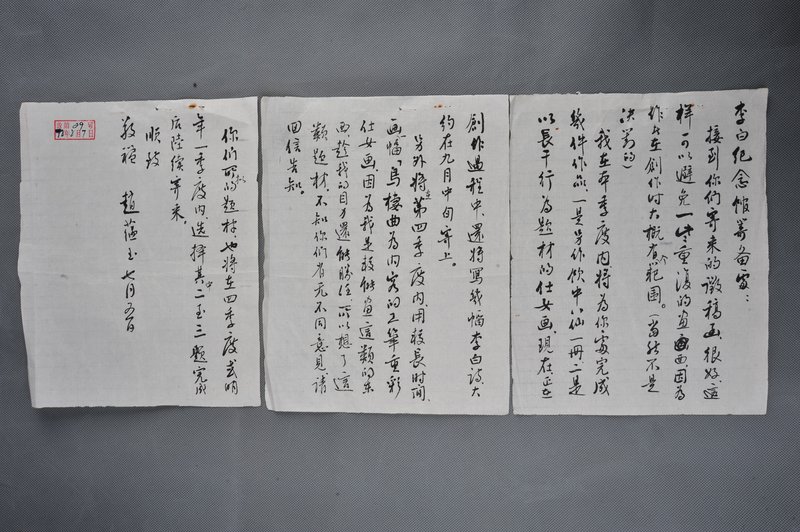 李白纪念馆筹备处：
接到你们寄来的徵稿函，很好，这
样可以避免一些重复的画面，因为
作者在创作时大概有个範围。（当然不是
决对的）
我在本季度内将为你处完成
幾件作品，一是另作饮中八仙一册，二是
以長干行为题材的仕女画，现在正在
創作过程中，還将写幾幅李白詩，大
约在九月中旬寄上。
另外将在第四季度内，用较長时间
画幅「烏棲曲」为内容的工筆重彩
仕女画，因为我是該能画這類的東
西，趁我的目力還能勝任，所以想了這
類题材，不知你们有无不同意見，请
回信告知。
你们所的题材，也将在四季度或明
年一季度内选择其中二至三题完成
后陸续寄来。
顺致
敬禮
趙蕴玉 七月五日
收信 09 号
82年8月7日